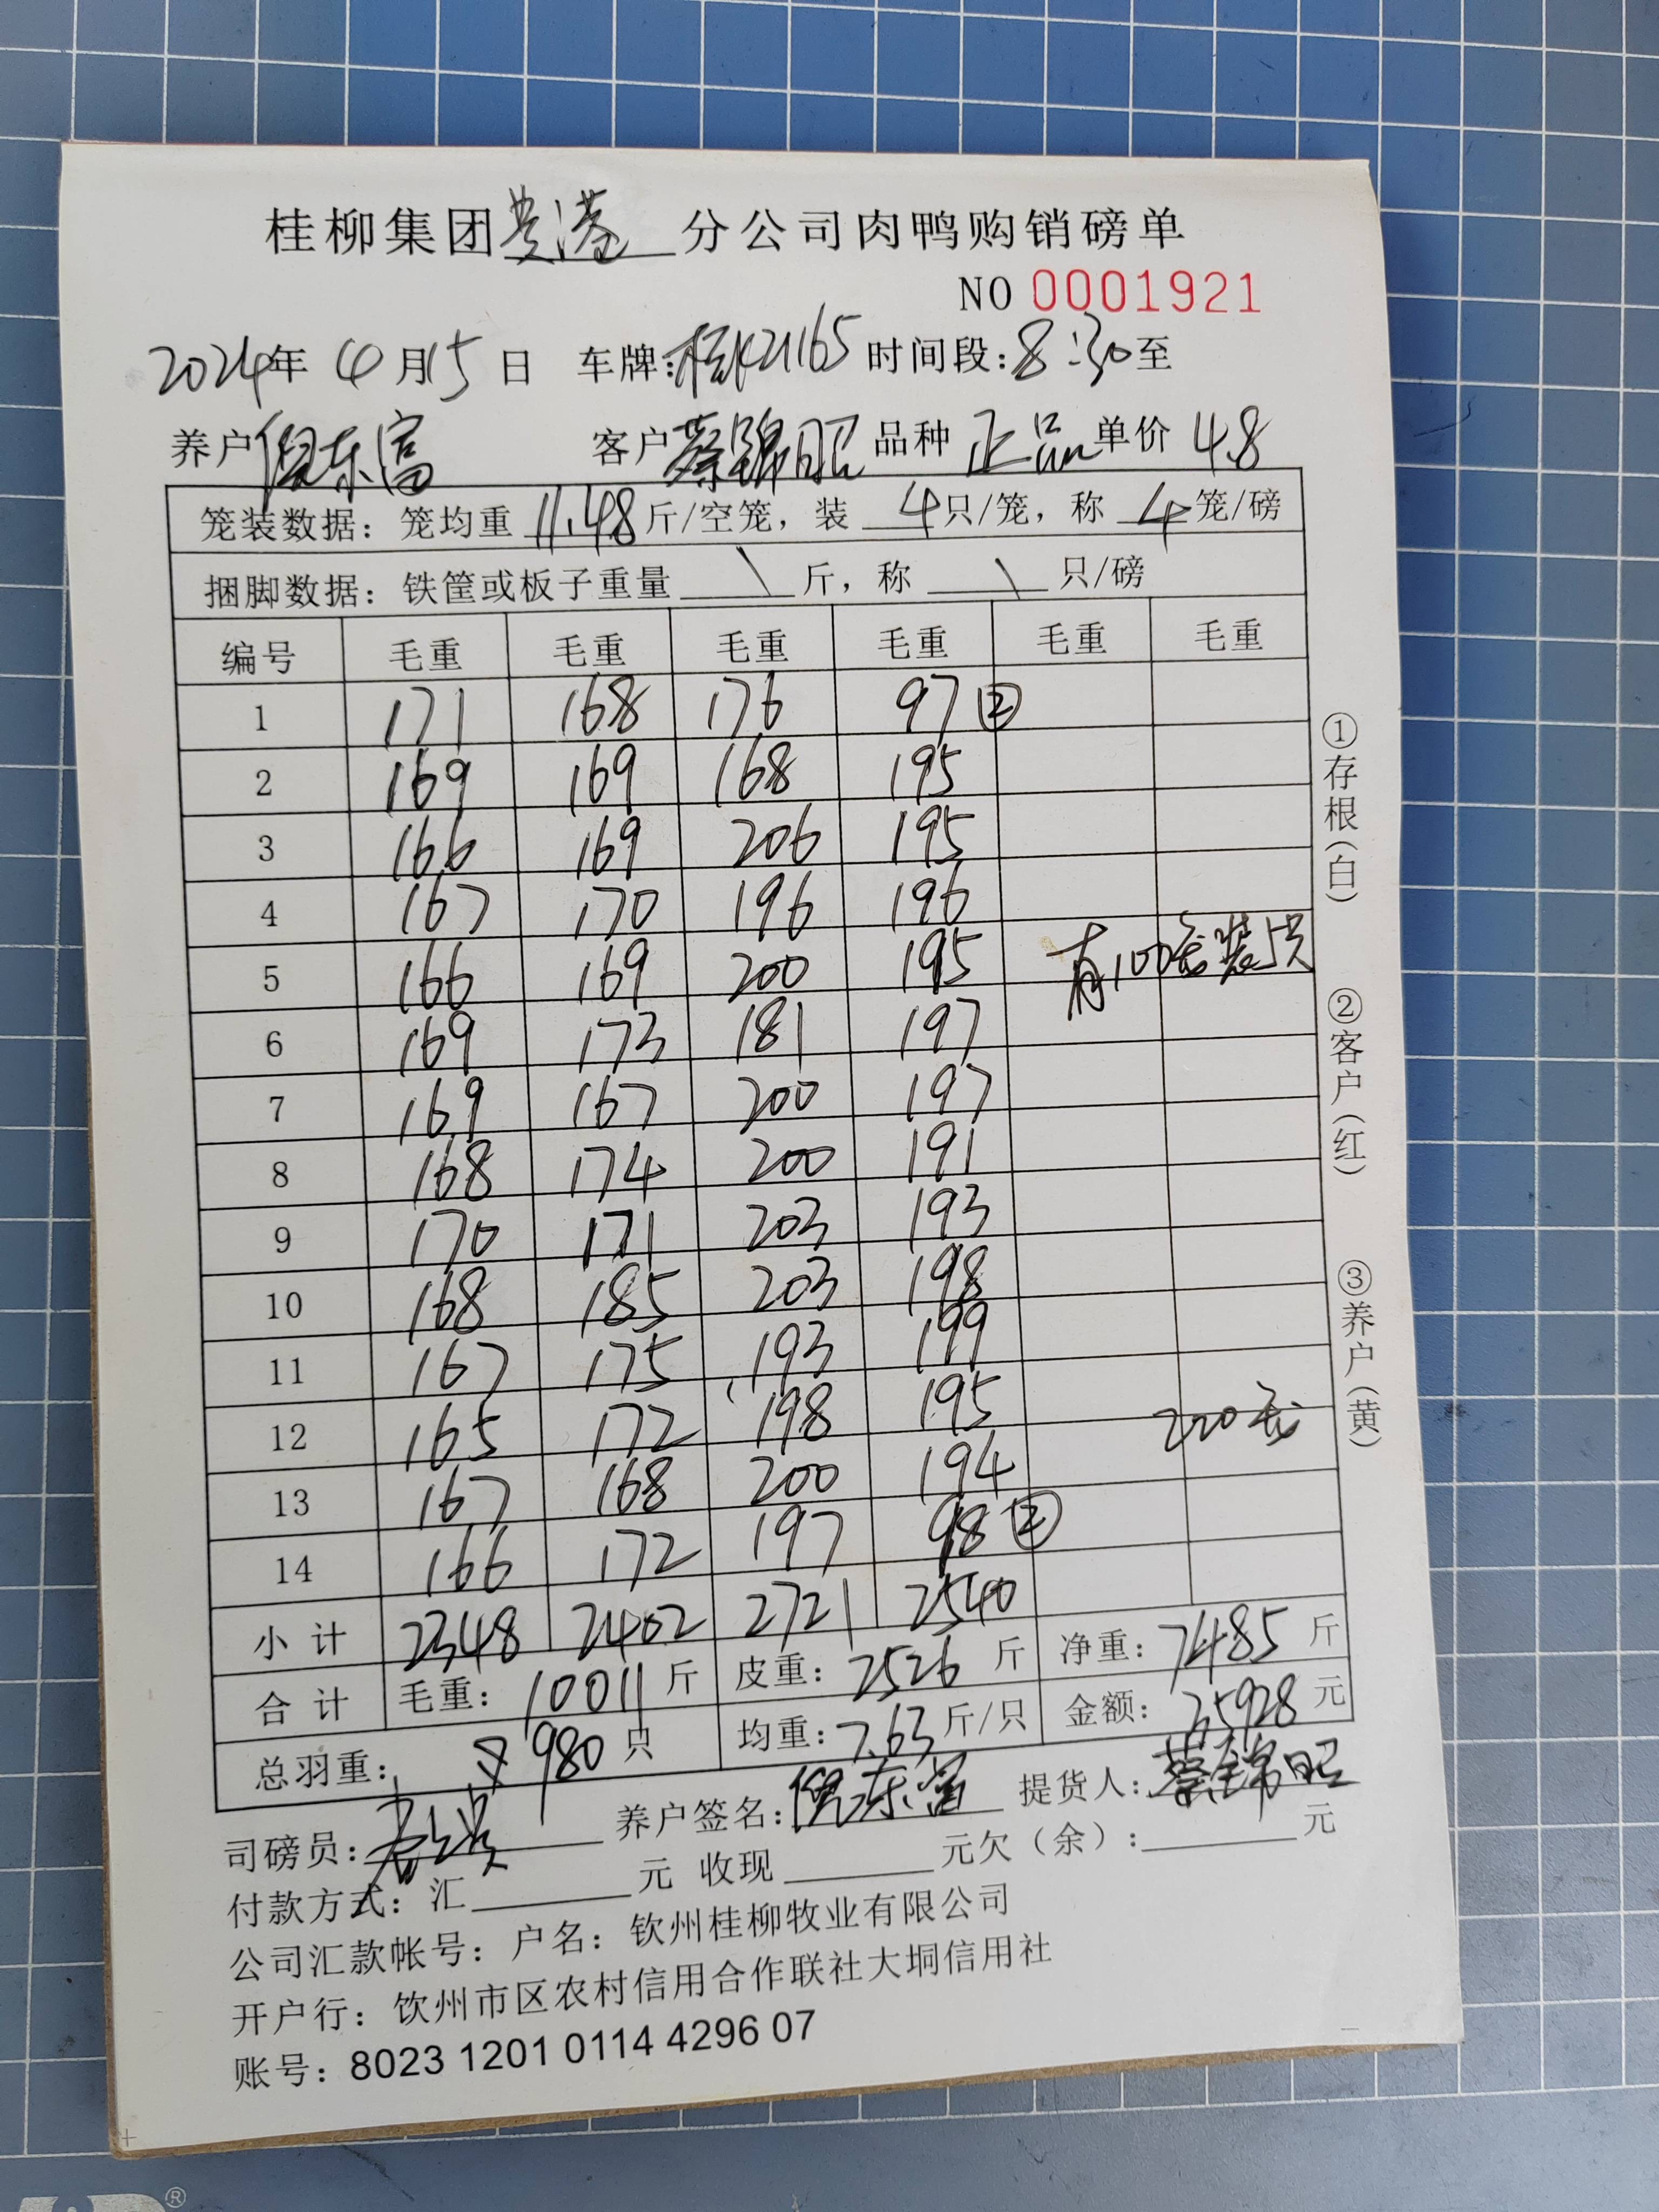 桂柳集团贵港分公司肉鸭购销磅单
NO 0001921
2024年 4月15日 车牌:桂K21165 时间段:8:30至
养户倪东富 客户蔡锦昭 品种 正品 单价 4.8
笼装数据：笼均重 11.48 斤/空笼，装 4 只/笼，称 4 笼/磅
捆脚数据：铁筐或板子重量 \ 斤，称 \ 只/磅
编号 毛重 毛重 毛重 毛重 毛重 毛重
1 171 168 176 97 ②
2 169 169 168 195
3 166 169 206 195
4 167 170 196 196
5 166 169 200 195 有100笼装5只
6 169 173 181 197
7 169 167 200 197
8 168 174 200 191
9 170 171 203 193
10 168 185 203 198
11 167 175 193 199
12 165 172 198 195 220笼
13 167 168 200 194
14 166 172 197 98 ②
小计 2348 2402 2721 2540
合计 毛重：10011斤 皮重：2526 斤 净重：7485 斤
总羽重： 980 只 均重：7.63斤/只 金额：35928 元
司磅员： 养户签名：倪东富 提货人：蔡锦昭
付款方式：汇 元 收现 元欠（余）： 元
公司汇款帐号：户名：钦州桂柳牧业有限公司
开户行：钦州市区农村信用合作联社大垌信用社
账号：8023 1201 0114 4296 07
①存根(白) ②客户(红) ③养户(黄)
®